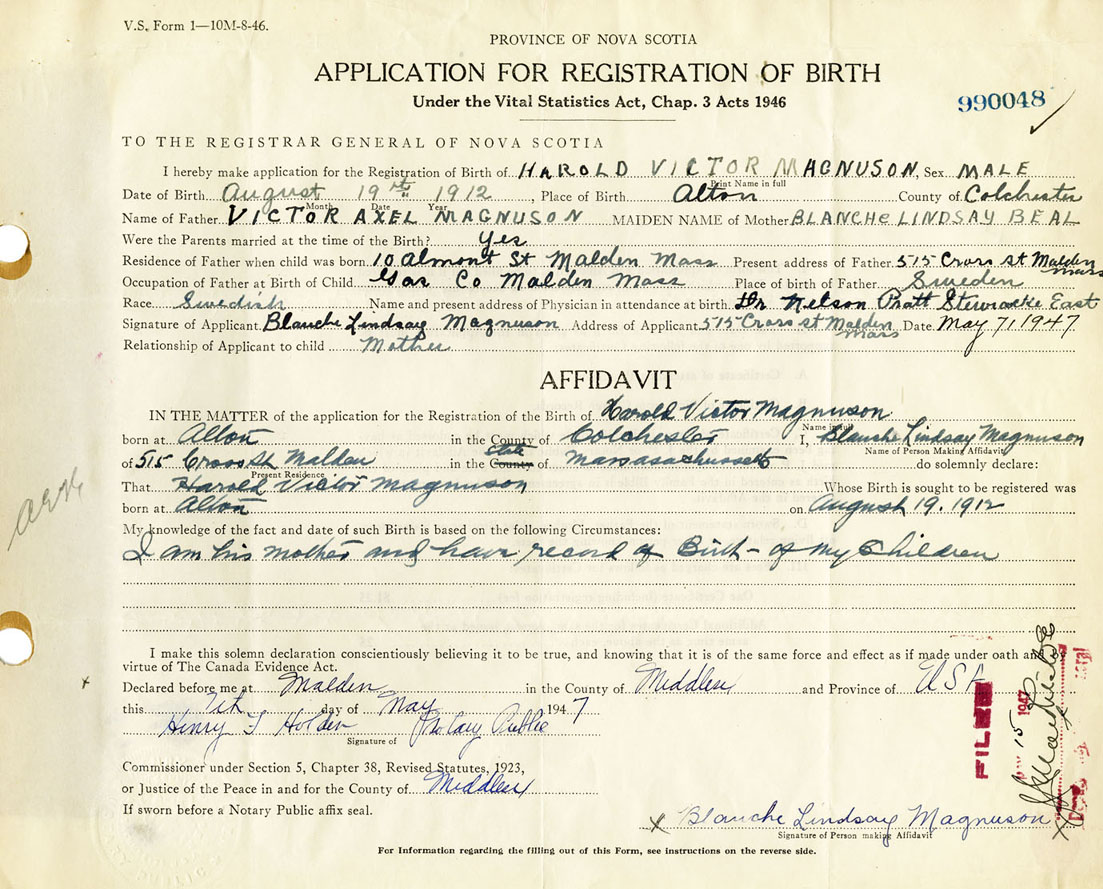 V.S. Form 1—10M-8-46.
PROVINCE OF NOVA SCOTIA
APPLICATION FOR REGISTRATION OF BIRTH
Under the Vital Statistics Act, Chap. 3 Acts 1946
990048
TO THE REGISTRAR GENERAL OF NOVA SCOTIA
I hereby make application for the Registration of Birth of HAROLD VICTOR MAGNUSON, Sex MALE
Print Name in full
Date of Birth August 19th 1912, Place of Birth Alton County of Colchester
Month Date Year
Name of Father VICTOR AXEL MAGNUSON MAIDEN NAME of Mother BLANCHE LINDSAY BEAL
Were the Parents married at the time of the Birth? Yes
Residence of Father when child was born 10 Almont St Malden Mass Present address of Father 515 Cross st Malden Mass
Occupation of Father at Birth of Child Gas Co Malden Mass Place of birth of Father Sweden
Race Swedish Name and present address of Physician in attendance at birth Dr Nelson Pratt East
Signature of Applicant Blanche Lindsay Magnuson Address of Applicant 515 Cross st Malden Mass Date May 7, 1947
Relationship of Applicant to child Mother
AFFIDAVIT
IN THE MATTER of the application for the Registration of the Birth of Harold Victor Magnuson
Name in full
born at Alton in the County of Colchester I, Blanche Lindsay Magnuson
Name of Person Making Affidavit
of 515 Cross St Malden in the County state of Massasachussetts do solemnly declare:
Present Residence
That Harold Victor Magnuson Whose Birth is sought to be registered was
born at Alton on August 19. 1912
My knowledge of the fact and date of such Birth is based on the following Circumstances:
I am his mother and have record of Birth - of my Children
I make this solemn declaration conscientiously believing it to be true, and knowing that it is of the same force and effect as if made under oath and by
virtue of The Canada Evidence Act.
Declared before me at Malden in the County of Middlesex and Province of USA
this 7th day of May 1947
Henry Holden Notary Public
Signature of
FILED
15 1947
Commissioner under Section 5, Chapter 38, Revised Statutes, 1923,
or Justice of the Peace in and for the County of Middlesex
If sworn before a Notary Public affix seal.
x Blanche Lindsay Magnuson
Signature of Person making Affidavit
For Information regarding the filling out of this Form, see instructions on the reverse side.